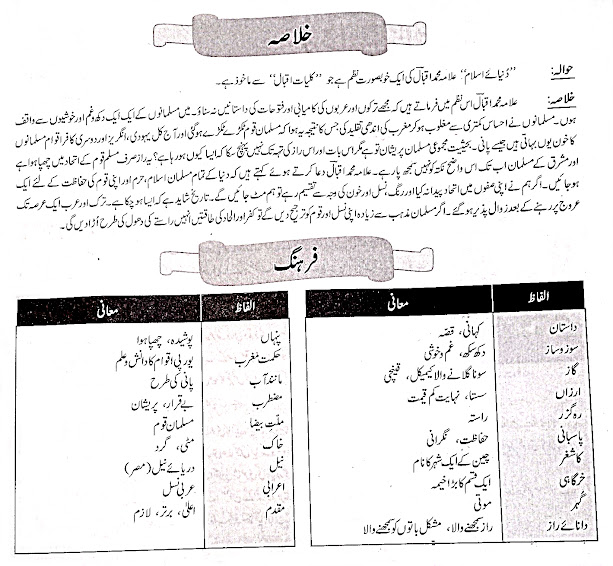 خلاصہ
حوالہ: ”دُنیائے اسلام“ علامہ محمد اقبالؔ کی ایک خوبصورت نظم ہے جو ”کلیات اقبال“ سے ماخوذ ہے۔
خلاصہ: علامہ محمد اقبالؔ اس نظم میں فرماتے ہیں کہ مجھے ترکوں اور عربوں کی کامیابی اور فتوحات کی داستانیں نہ سناؤ۔ میں مسلمانوں کے ایک ایک دکھ وغم اور خوشیوں سے واقف
ہوں۔ مسلمانوں نے احساس کمتری سے مغلوب ہو کر مغرب کی اندھی تقلید کی جس کا نتیجہ یہ ہوا کہ مسلمان قوم ٹکڑے ٹکڑے ہو گئی اور آج کل یہودی، انگریز اور دوسری کافر اقوام مسلمانوں
کا خون یوں بہاتی ہیں جیسے پانی۔ بحیثیت مجموعی مسلمان پریشان تو ہے مگر اس بات اور اس راز کی تہہ تک نہیں پہنچ سکا کہ ایسا کیوں ہو رہا ہے؟ یہ راز صرف مسلم قوم کے اتحاد میں چھپا ہوا ہے
اور مشرق کے مسلمان اب تک اس واضح نکتہ کو نہیں سمجھ پا رہے۔ علامہ محمد اقبالؔ دعا کرتے ہوئے کہتے ہیں کہ دنیا کے تمام مسلمان اسلام، حرم اور اپنی قوم کی حفاظت کے لئے ایک
ہو جائیں۔ اگر ہم نے اپنی صفوں میں اتحاد پیدا نہ کیا اور رنگ، نسل اور خون کی وجہ سے تقسیم رہے تو ہم مٹ جائیں گے۔ تاریخ شاہد ہے کہ ایسا ہو چکا ہے۔ ترک اور عرب ایک عرصہ تک
عروج پر رہنے کے بعد زوال پذیر ہو گئے۔ اگر مسلمان مذہب سے زیادہ اپنی نسل اور قوم کو ترجیح دیں گے تو کفر اور الحاد کی طاقتیں انہیں راستے کی دھول کی طرح اُڑا دیں گی۔
فرہنگ
الفاظ معانی
داستان کہانی، قصہ
سوز و ساز دکھ سکھ، غم و خوشی
گاز سونا گلانے والا کیمیکل، قینچی
ارزاں سستا، نہایت کم قیمت
رہ گزر راستہ
پاسبانی حفاظت، نگرانی
کاشغر چین کے ایک شہر کا نام
خرگاہی ایک قسم کا بڑا خیمہ
گُہر موتی
دانائے راز راز سمجھنے والا، مشکل باتوں کو سمجھنے والا
الفاظ معانی
پنہاں پوشیدہ، چھپا ہوا
حکمت مغرب یورپی اقوام کا دانش و علم
مانند آب پانی کی طرح
مضطرب بے قرار، پریشان
ملّتِ بیضا مسلمان قوم
خاک مٹی، گرد
نیل دریائے نیل (مصر)
اعرابی عربی نسل
مقدم اعلیٰ، برتر، لازم